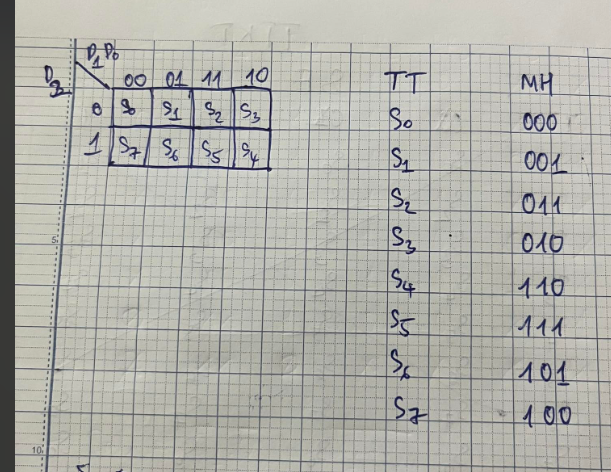 D₁D₀
D₂ 00 01 11 10
0 S₀ S₁ S₂ S₃
1 S₇ S₆ S₅ S₄
TT MH
S₀ 000
S₁ 001
S₂ 011
S₃ 010
S₄ 110
S₅ 111
S₆ 101
S₇ 100
5
10